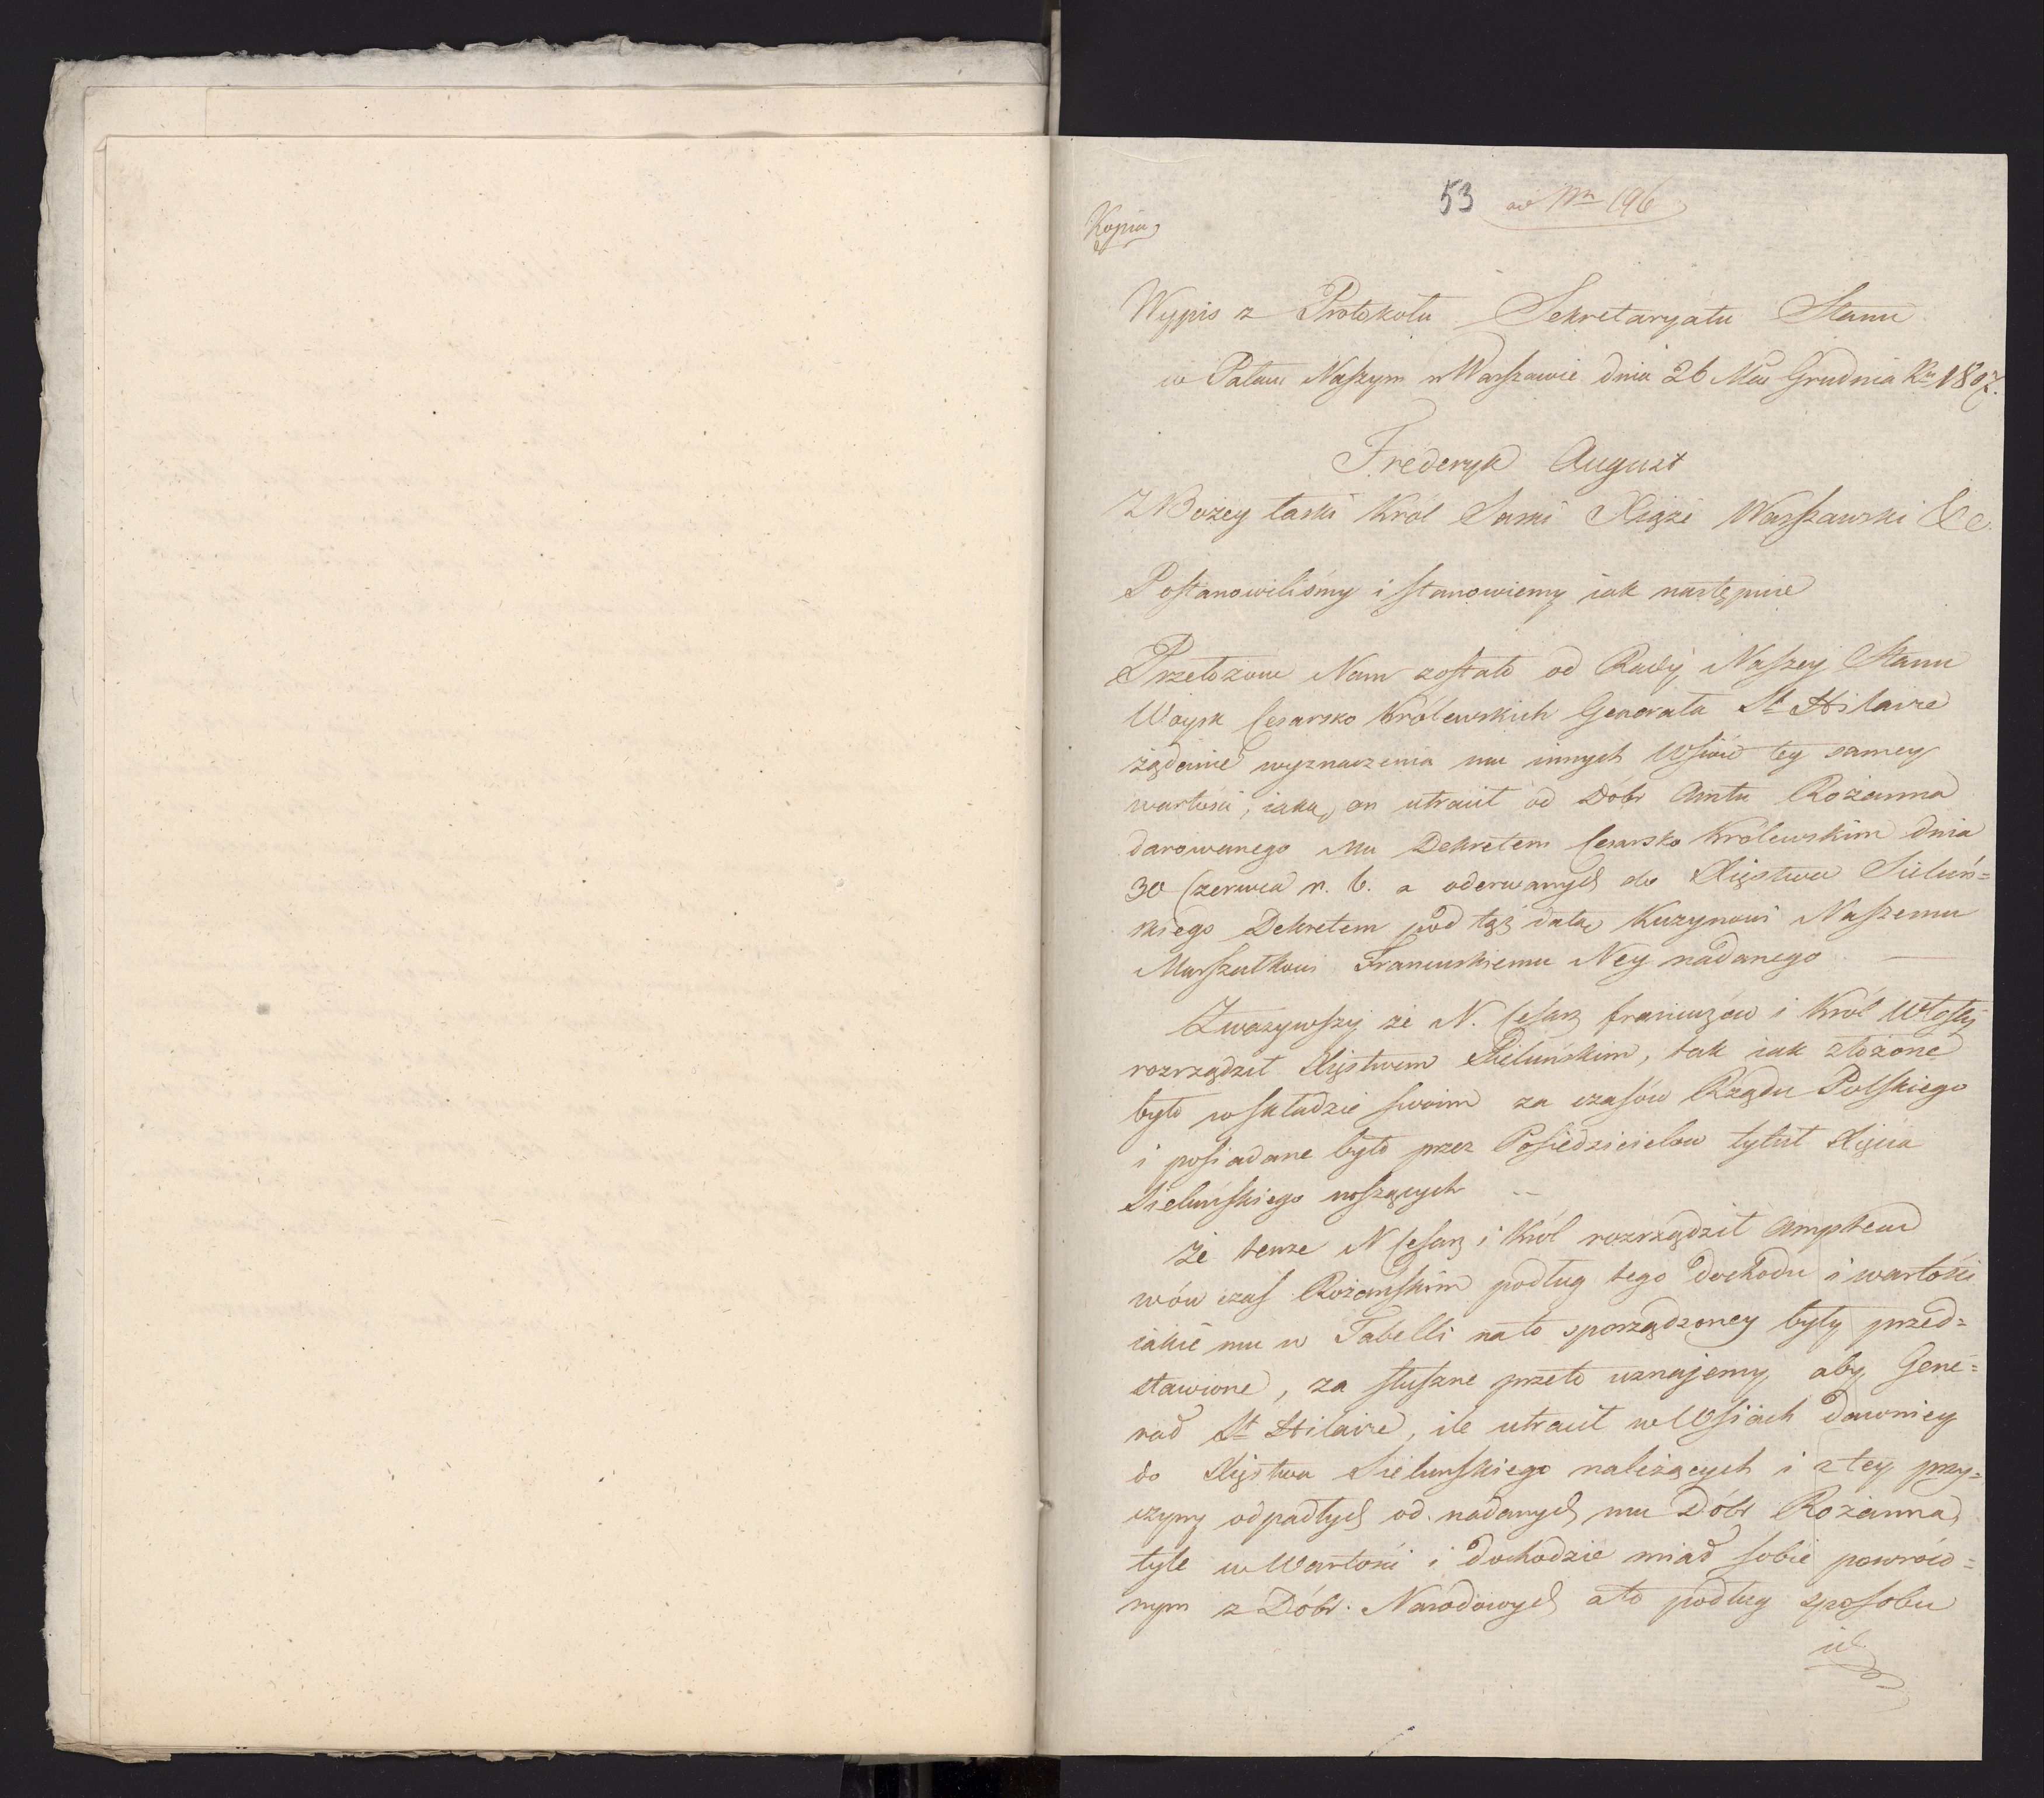 53 ad Nr 196
Kopia
Wypis z Protokołu Sekretaryatu Stanu
w Pałacu Naszym w Warszawie dnia 26 Mca Grudnia Ru 1807.
Frederyk August
Z Bożey łaski Król Saski Xiąże Warszawski &c.
Postanowiliśmy i stanowiemy iak następuie
Przełożone Nam zostało od Rady Naszey Stanu
Woysk Cesarsko Królewskich Generała St Hilaire
żądanie wyznaczenia mu innych Wsiów tey samey
wartości, iaką on utracił od Dóbr Amtu Rożanna
darowanego mu Dekretem Cesarsko Królewskim dnia
30 Czerwca r. b. a oderwanych do Xięstwa Sieluń=
skiego Dekretem pod tąż datą Kuzynowi Naszemu
Marszałkowi Francuskiemu Ney nadanego
Zważywszy że N. Cesarz francuzów i Król Włoski
rozrządził Xięstwem Sieluńskim, tak iak złożone
było w składzie swoim za czasów Rządu Polskiego
i posiadane było przez Posiedzicielow tytuł Xięcia
Sieluńskiego noszących
Że tenże N Cesarz i Król rozrządził Amptem
wów czas Rożańskim podług tego dochodu i wartości
iakie mu w Tabelli na to sporządzoney były przed=
stawione, za słuszne przeto uznajemy aby Gene=
rał St Hilaire, ile utracił w Wsiach dawniey
do Xięstwa Sieluńskiego należących i z tey przy=
czyny odpadłych od nadanych mu Dóbr Rożanna,
tyle w Wartości i dochodzie miał sobie powróco=
nym z Dóbr Narodowych a to podług sposobu